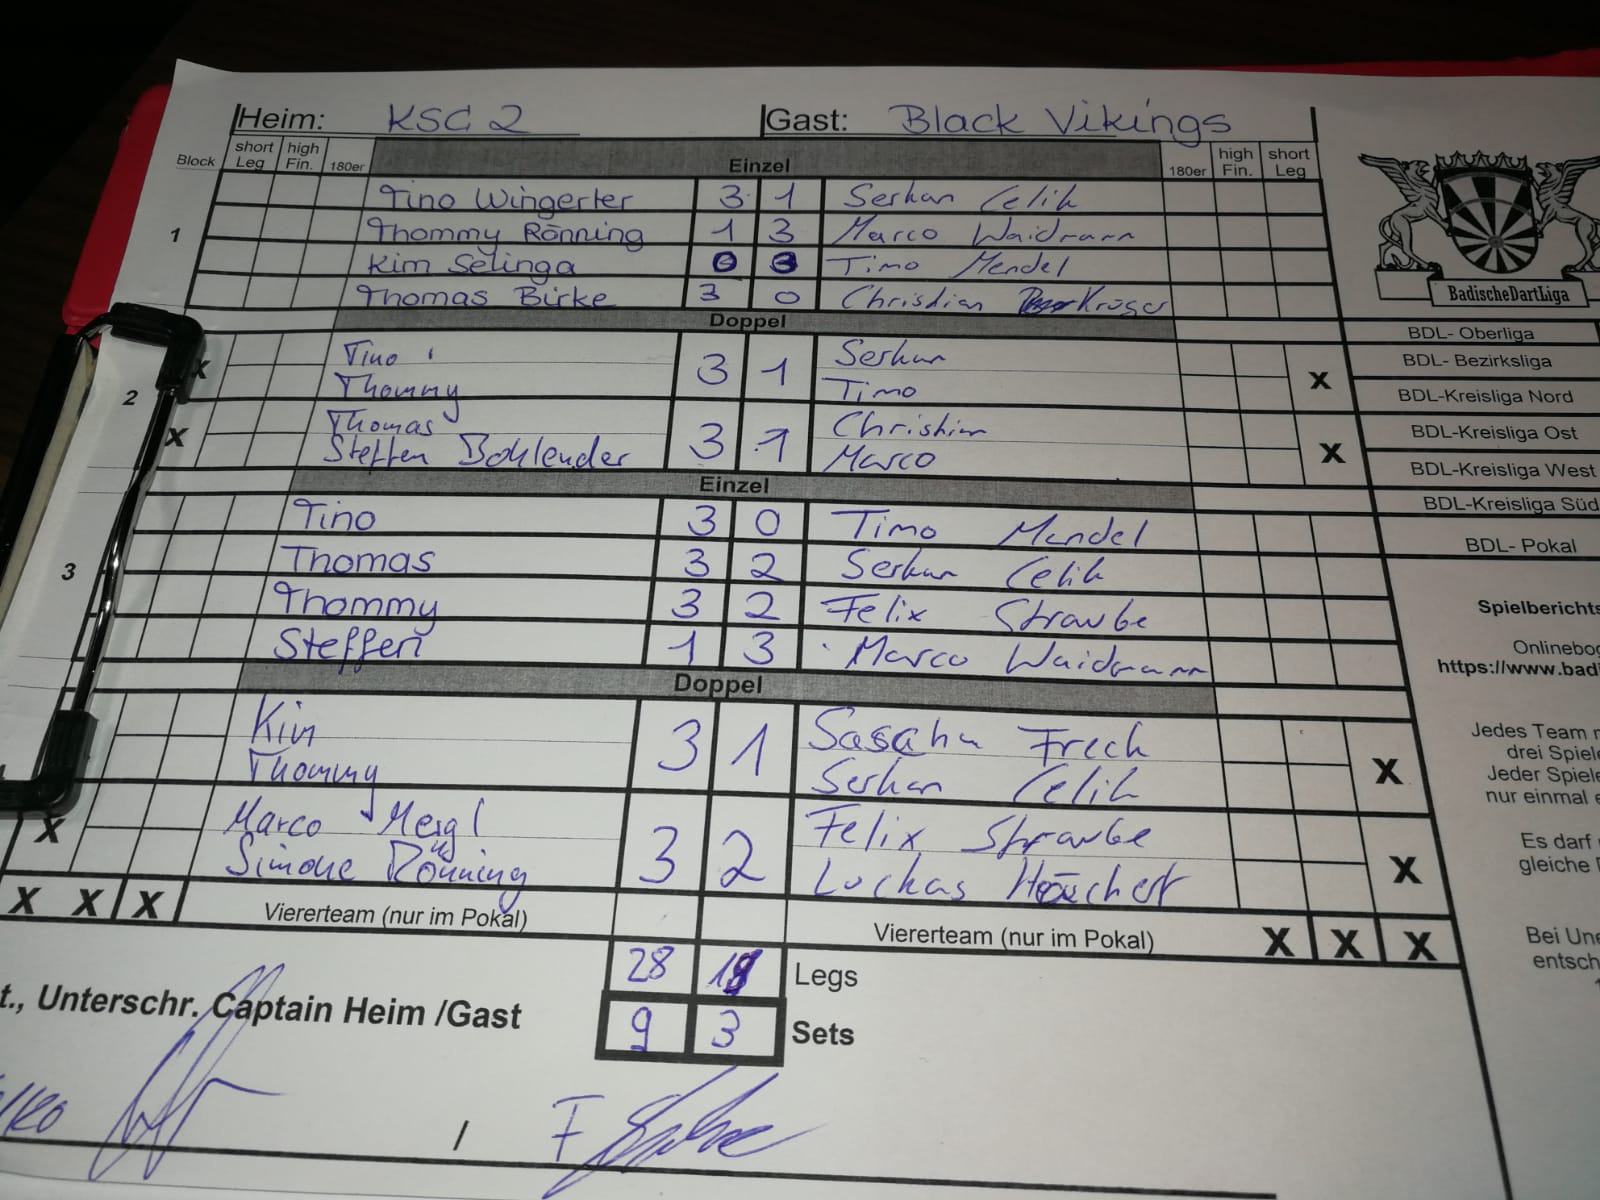 Heim: KSC 2 Gast: Black Vikings
Block short Leg high Fin. 180er Einzel 180er high Fin. short Leg
1
Tino Wingerter 3 1 Serkan Celik
Thommy Rönning 1 3 Marco Waidmann
Kim Selinga 0 3 Timo Mendel
Thomas Birke 3 0 Christian Krüger
Doppel
2
X Tino Thommy 3 1 Serkan Timo X
X Thomas Steffen Bohlender 3 1 Christian Marco X
Einzel
3
Tino 3 0 Timo Mendel
Thomas 3 2 Serkan Celik
Thommy 3 2 Felix Straube
Steffen 1 3 Marco Waidmann
Doppel
Kim Thommy 3 1 Sascha Frech Serkan Celik X
X Marco Mergl Simone Rönning 3 2 Felix Straube Luckas X
X X X Viererteam (nur im Pokal) Viererteam (nur im Pokal) X X X
28 18 Legs
t., Unterschr. Captain Heim /Gast 9 3 Sets
/ F
BadischeDartLiga
BDL- Oberliga
BDL- Bezirksliga
BDL-Kreisliga Nord
BDL-Kreisliga Ost
BDL-Kreisliga West
BDL-Kreisliga Süd
BDL- Pokal
Spielberichts
Onlineboo
https://www.badi
Jedes Team m
drei Spiele
Jeder Spiele
nur einmal e
Es darf
gleiche
Bei Une
entsch